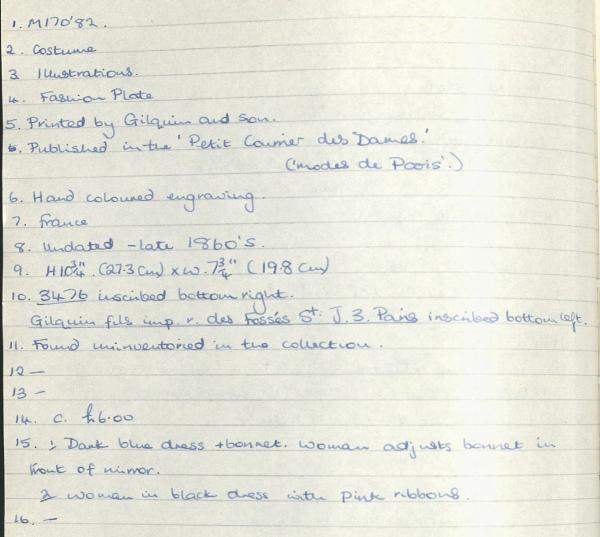 1. M170'82.
2. Costume
3 Illustrations.
4. Fashion Plate
5. Printed by Gilquin and son.
6. Published in the 'Petit Courrier des Dames.'
('modes de Paris'.)
6. Hand coloured engraving.
7. France
8. Undated - late 1860's.
9. H10 3/4". (27.3 cm) x w. 7 3/4" (19.8 cm)
10. 3476 inscribed bottom right.
Gilquin fils imp. r. des Fossés St. J. 3. Paris inscribed bottom left.
11. Found uninventoried in the collection.
12 —
13 —
14. c. £6.00
15. 1, Dark blue dress + bonnet. Woman adjusts bonnet in
front of mirror.
2 woman in black dress with pink ribbons.
16. —